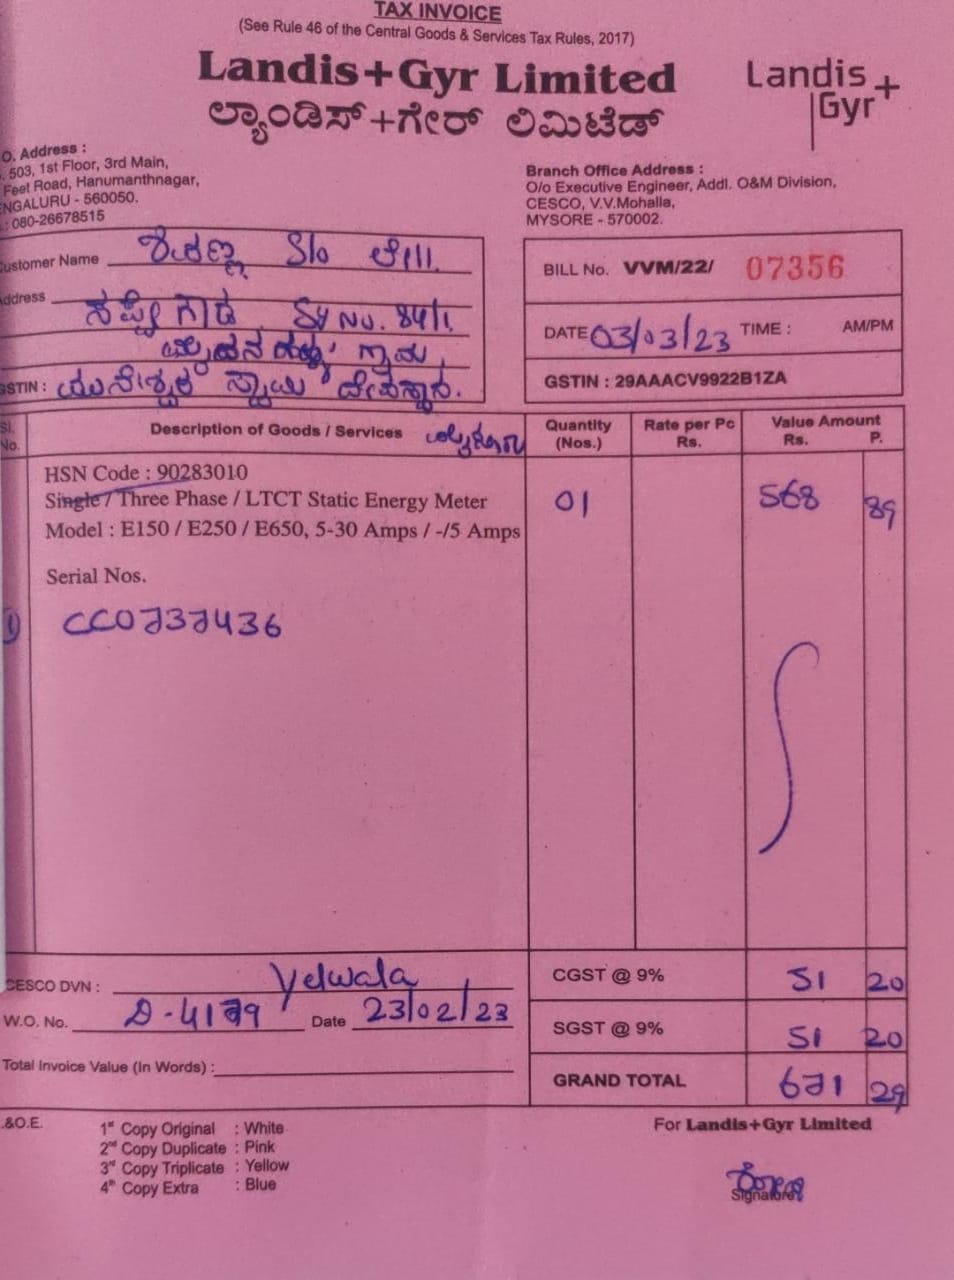 TAX INVOICE
(See Rule 46 of the Central Goods & Services Tax Rules, 2017)
Landis+Gyr Limited
ಲ್ಯಾಂಡಿಸ್+ಗೇರ್ ಲಿಮಿಟೆಡ್
Landis+
Gyr
O. Address :
503, 1st Floor, 3rd Main,
Feet Road, Hanumanthnagar,
NGALURU - 560050.
: 080-26678515
Branch Office Address :
O/o Executive Engineer, Addl. O&M Division,
CESCO, V.V.Mohalla,
MYSORE - 570002.
ustomer Name S/o
ddress Sy No. 84/1.
GSTIN :
BILL No. VVM/22/ 07356
DATE 03/03/23 TIME : AM/PM
GSTIN : 29AAACV9922B1ZA
Sl. No. Description of Goods / Services Quantity (Nos.) Rate per Pc Rs. Value Amount Rs. P.
HSN Code : 90283010
Single / Three Phase / LTCT Static Energy Meter 01 568 89
Model : E150 / E250 / E650, 5-30 Amps / -/5 Amps
Serial Nos.
1) CC0737436
CESCO DVN : Yelwala
W.O. No. Date 23/02/23
Total Invoice Value (In Words) :
CGST @ 9% 51 20
SGST @ 9% 51 20
GRAND TOTAL 671 29
.&O.E.
1st Copy Original : White
2nd Copy Duplicate : Pink
3rd Copy Triplicate : Yellow
4th Copy Extra : Blue
For Landis+Gyr Limited
Signature